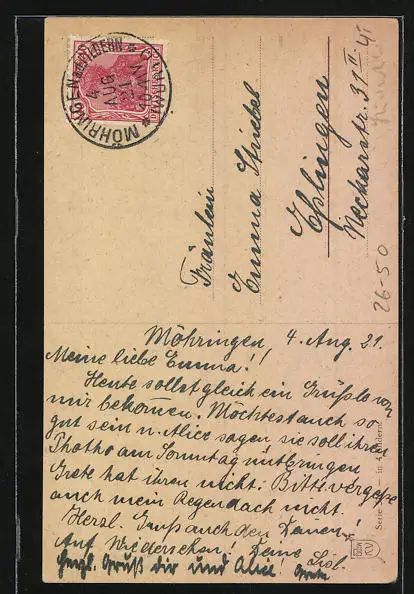 MÖHRINGEN a.d. FILDERN
4
AUG
21
Fräulein
Emma Striebel
Eßlingen
Neckarstr. 31 II
26-50
Möhringen, 4. Aug. 21.
Meine liebe Emma!!
Heute sollst gleich ein Grüßle von
mir bekommen. Möchtest auch so
gut sein u. Alice sagen sie soll ihren
Photho am Sonntag mitbringen
Grete hat ihren nicht. Bitte vergeße
auch mein Regendach nicht.
Herzl. Gruß auch den Deinen!
Auf Wiedersehen! Deine Lisl.
Herzl. Gruß dir und Alice! Grete
Serie